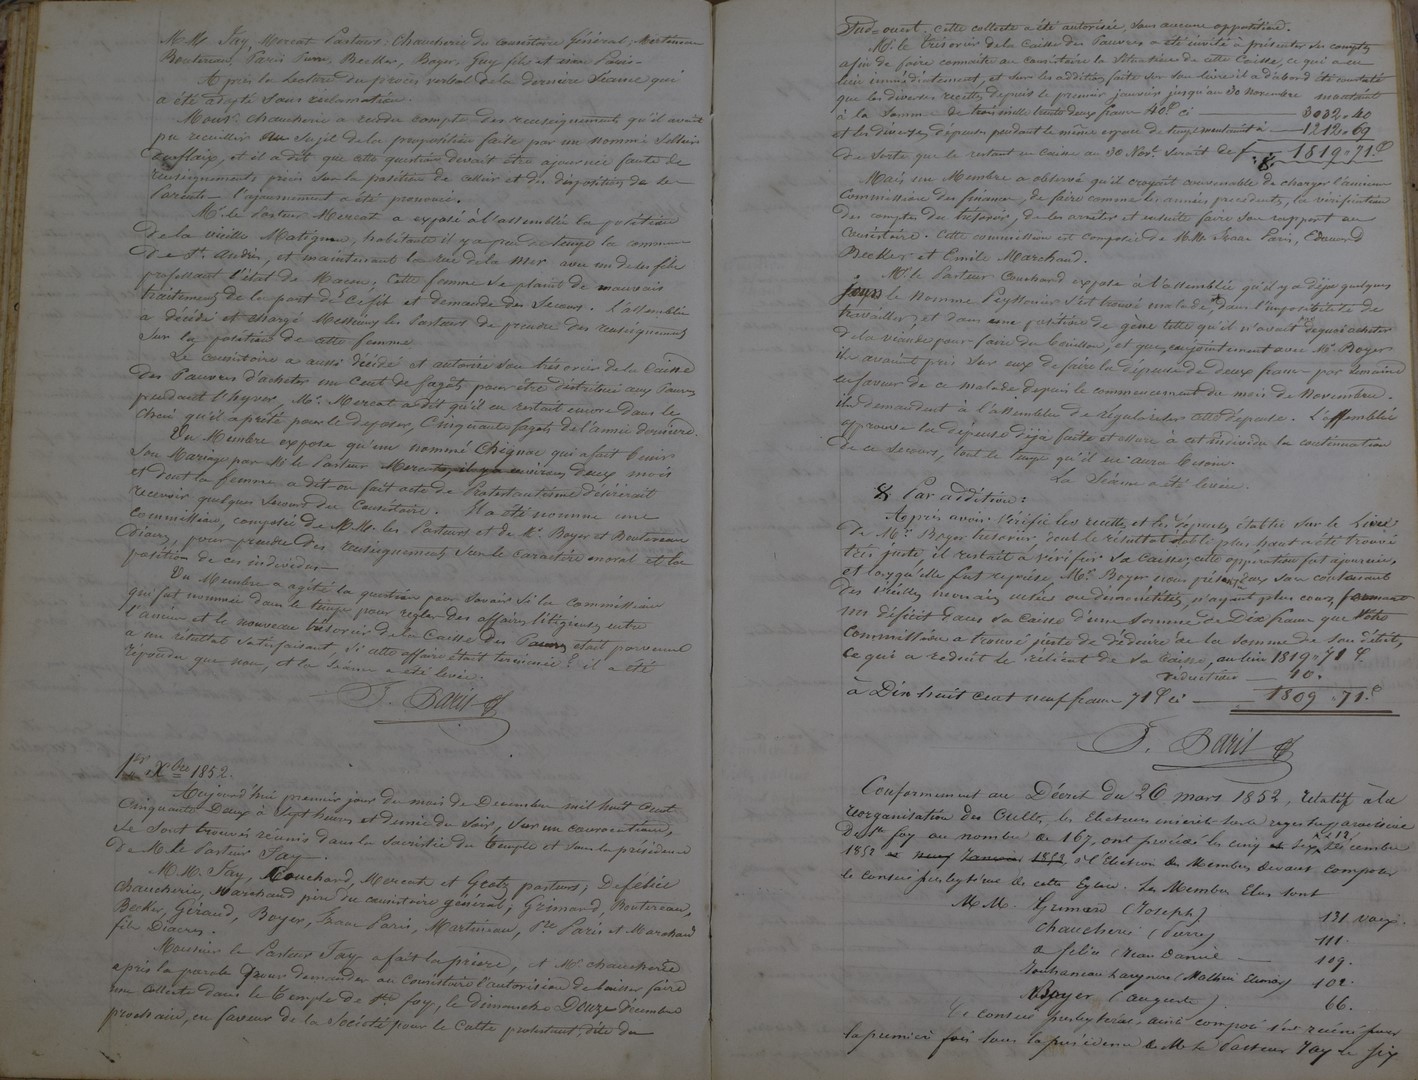 M.M. Jay, Mercat Pasteurs; Chaucherie du consistoire général; Martineau
Boutereau, Paris Pierre, Becker, Boyer, Guy fils et Paris.
Après la lecture du procès verbal de la dernière séance qui
a été adopté sans réclamation.
Monsr. Chaucherie a rendu compte des renseignements qu'il avait
pu recueillir au sujet de la proposition faite par un nommé
et il a dit que cette question devait être ajournée faute de
renseignements précis sur la position de celui et du disposition de la
l'ajournement a été prononcé.
Mr. le Pasteur Mercat a exposé à l'assemblée la position
de la vieille Matignon, habitante il y a peu de temps la commune
de St. André, et maintenant la rue de la Mer avec un de ses fils
professant l'état de Maçon, cette femme se plaint de mauvais
traitements de la part de ce fils et demande des secours. L'assemblée
a décidé et chargé Messieurs les Pasteurs de prendre des renseignements
sur la position de cette femme
Le consistoire a aussi décidé et autorisé son trésorier de la Caisse
des Pauvres d'acheter un cent de fagots pour être distribué aux Pauvres
pendant l'hyver, Mr. Mercat a dit qu'il en restait encore dans le
chai qu'il a prêté pour le déposer, cinquante fagots de l'année dernière.
Un Membre expose qu'un nommé Chignac qui a fait bénir
son Mariage par M. le Pasteur Mercat il y a environ deux mois
et dont la femme a dit on fait acte de Protestantisme désirerait
recevoir quelques secours du Consistoire. Il a été nommé une
Commission, composée de M.M. les Pasteurs et de Mr. Boyer et Boutereau
Diacres, pour prendre des renseignements sur le caractère moral et la
position de ces individus
Un Membre a agité la question pour savoir si la commission
qui fut nommée dans le temps pour régler des affaires litigieuses entre
l'ancien et le nouveau trésorier de la Caisse des Pauvres était parvenue
à un résultat satisfaisant, si cette affaire était terminée? il a été
répondu que non, et la séance a été levée.
P. Paris
1er Xbre 1852.
Aujourd'hui premier jour du mois de Décembre mil huit cent
cinquante Deux à sept heures et demie du soir, sur un convocation,
se sont trouvés réunis dans la sacristie du temple et sous la présidence
de M. le Pasteur Jay.
M.M. Jay, Couchard, Mercat et Goetz pasteurs; Defélice
Chaucherie, Marchand père du consistoire général; Grimard, Boutereau,
Becker, Giraud, Boyer, Isaac Paris, Martineau, Pre. Paris et Marchand
fils Diacres.
Monsieur le Pasteur Jay a fait la prière, et Mr. Chaucherie
a pris la parole pour demander au Consistoire l'autorisation de laisser faire
une collecte dans le temple de Ste foy, le dimanche Douze décembre
prochain, en faveur de la société pour le culte protestant, dite du
Sud-ouest, cette collecte a été autorisée sans aucune opposition.
Mr. le trésorier de la Caisse des Pauvres a été invité à présenter ses comptes
afin de faire connaître au consistoire la situation de cette Caisse, ce qui a eu
lieu immédiatement, et sur les additions faites sur son livre il a d'abord été constaté
que les diverses recettes depuis le premier janvier jusqu'au 30 Novembre montant
à la somme de trois mille trente deux francs 40c ci 3032.40
et les diverses dépenses pendant le même espace de temps montant à 1212.69
de sorte que le restant en caisse au 30 Novr. serait de f 1819.71c
Mais un Membre a observé qu'il croyait convenable de charger l'ancienne
Commission des finances, de faire comme les années précédentes, la vérification
des comptes du trésorier, de les arrêter et ensuite faire son rapport au
Consistoire. Cette commission est composée de M.M. Isaac Paris, Edouard
Becker et Emile Marchand.
Mr. le Pasteur Couchard expose à l'assemblée qu'il y a déjà quelques
jours le nommé Peyssonier s'est trouvé malade, dans l'impossibilité de
travailler, et dans une position de gêne telle qu'il n'avait pas de quoi acheter
de la viande pour faire du bouillon, et que, conjointement avec Mr. Boyer
ils avaient pris sur eux de faire la dépense de deux francs par semaine
en faveur de ce malade depuis le commencement du mois de Novembre.
ils demandent à l'assemblée de régulariser cette dépense. L'assemblée
approuve la dépense déjà faite et assure à cet individu la continuation
de ce secours, tout le temps qu'il en aura besoin.
La Séance a été levée.
Par addition:
Après avoir vérifié les recettes et les dépenses établies sur le Livre
de Mr. Boyer trésorier, dont le résultat établi plus haut a été trouvé
très juste, il restait à vérifier sa caisse, cette opération fut ajournée,
et lorsqu'elle fut reprise, Mr. Boyer nous présenta son contenant
des vieilles monnaies usées ou démonétisées, n'ayant plus cours, formant
un déficit dans sa caisse d'une somme de Dix francs que Votre
Commission a trouvé juste de déduire de la somme de son débit,
ce qui a réduit le reliquat de sa caisse, au lieu 1819.71c
réduction 10.
à Dix huit cent neuf francs 71c ci 1809.71c
P. Paris
Conformément au Décret du 26 mars 1852, relatif à la
réorganisation des Cultes, les électeurs inscrits sur le registre paroissial
de Ste foy au nombre de 167, ont procédé les cinq et six Décembre
1852 à l'élection des Membres devant composer
le conseil presbytéral de cette Eglise. Les Membres élus sont
M.M. Grimard (Joseph) 131 voix.
Chaucherie (Pierre) 111.
Defélice (Jean Daniel) 109.
102.
Boyer (Auguste) 66.
Ce conseil presbytéral ainsi composé s'est réuni pour
la première fois sous la présidence de M. le Pasteur Jay le six